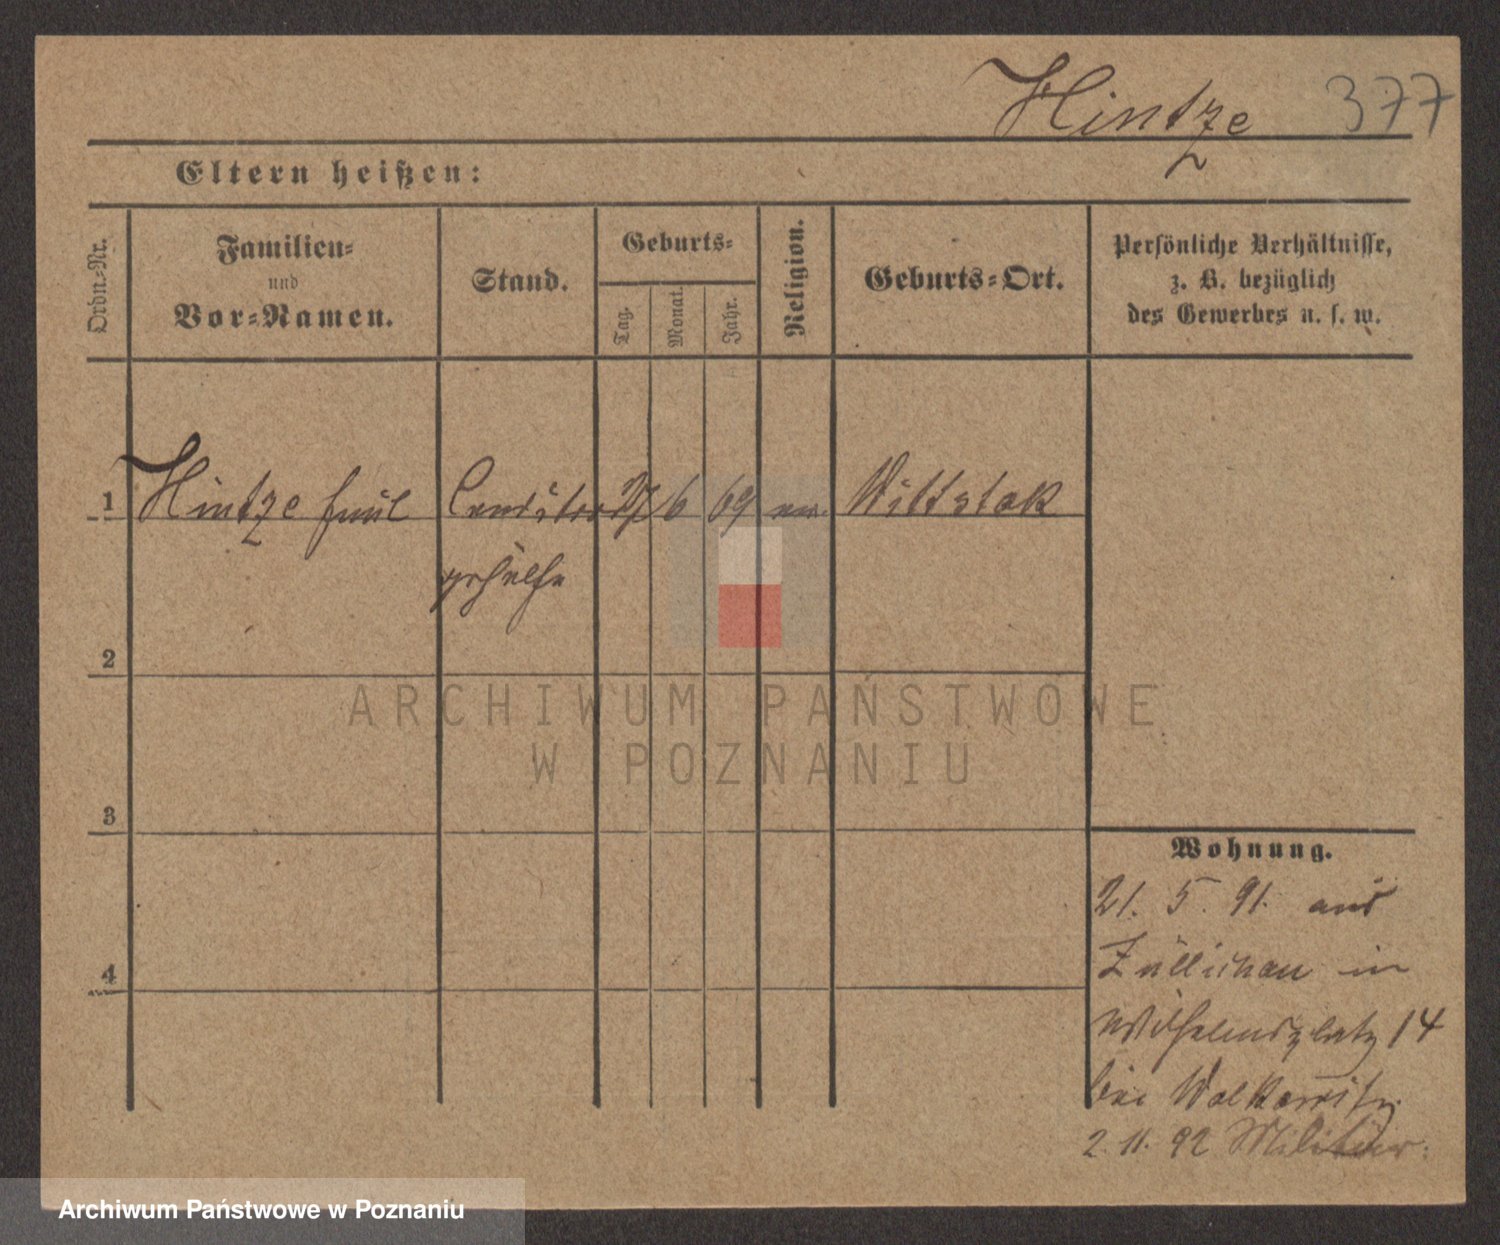 Hintze 377
Eltern heißen:
Ordn.-Nr.
Familien-
und
Vor-Namen.
Stand.
Geburts-
Tag.
Monat.
Jahr.
Religion.
Geburts-Ort.
Persönliche Verhältnisse,
z. B. bezüglich
des Gewerbes u. s. w.
1 Hintze Paul Conditor 27 6 69 ev. Wittstok
gehülfe
2
ARCHIWUM PAŃSTWOWE
W POZNANIU
3
Wohnung.
21. 5. 91. aus
Züllichau in
4
Wilhelmsplatz 14
bei Wolkowitz
2. 11. 92 Militair:
Archiwum Państwowe w Poznaniu